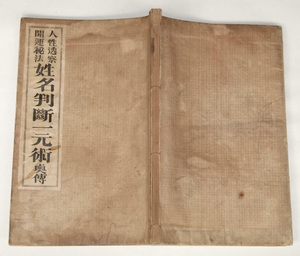 人性透察
開運秘法
姓名判断一元術
奥傳